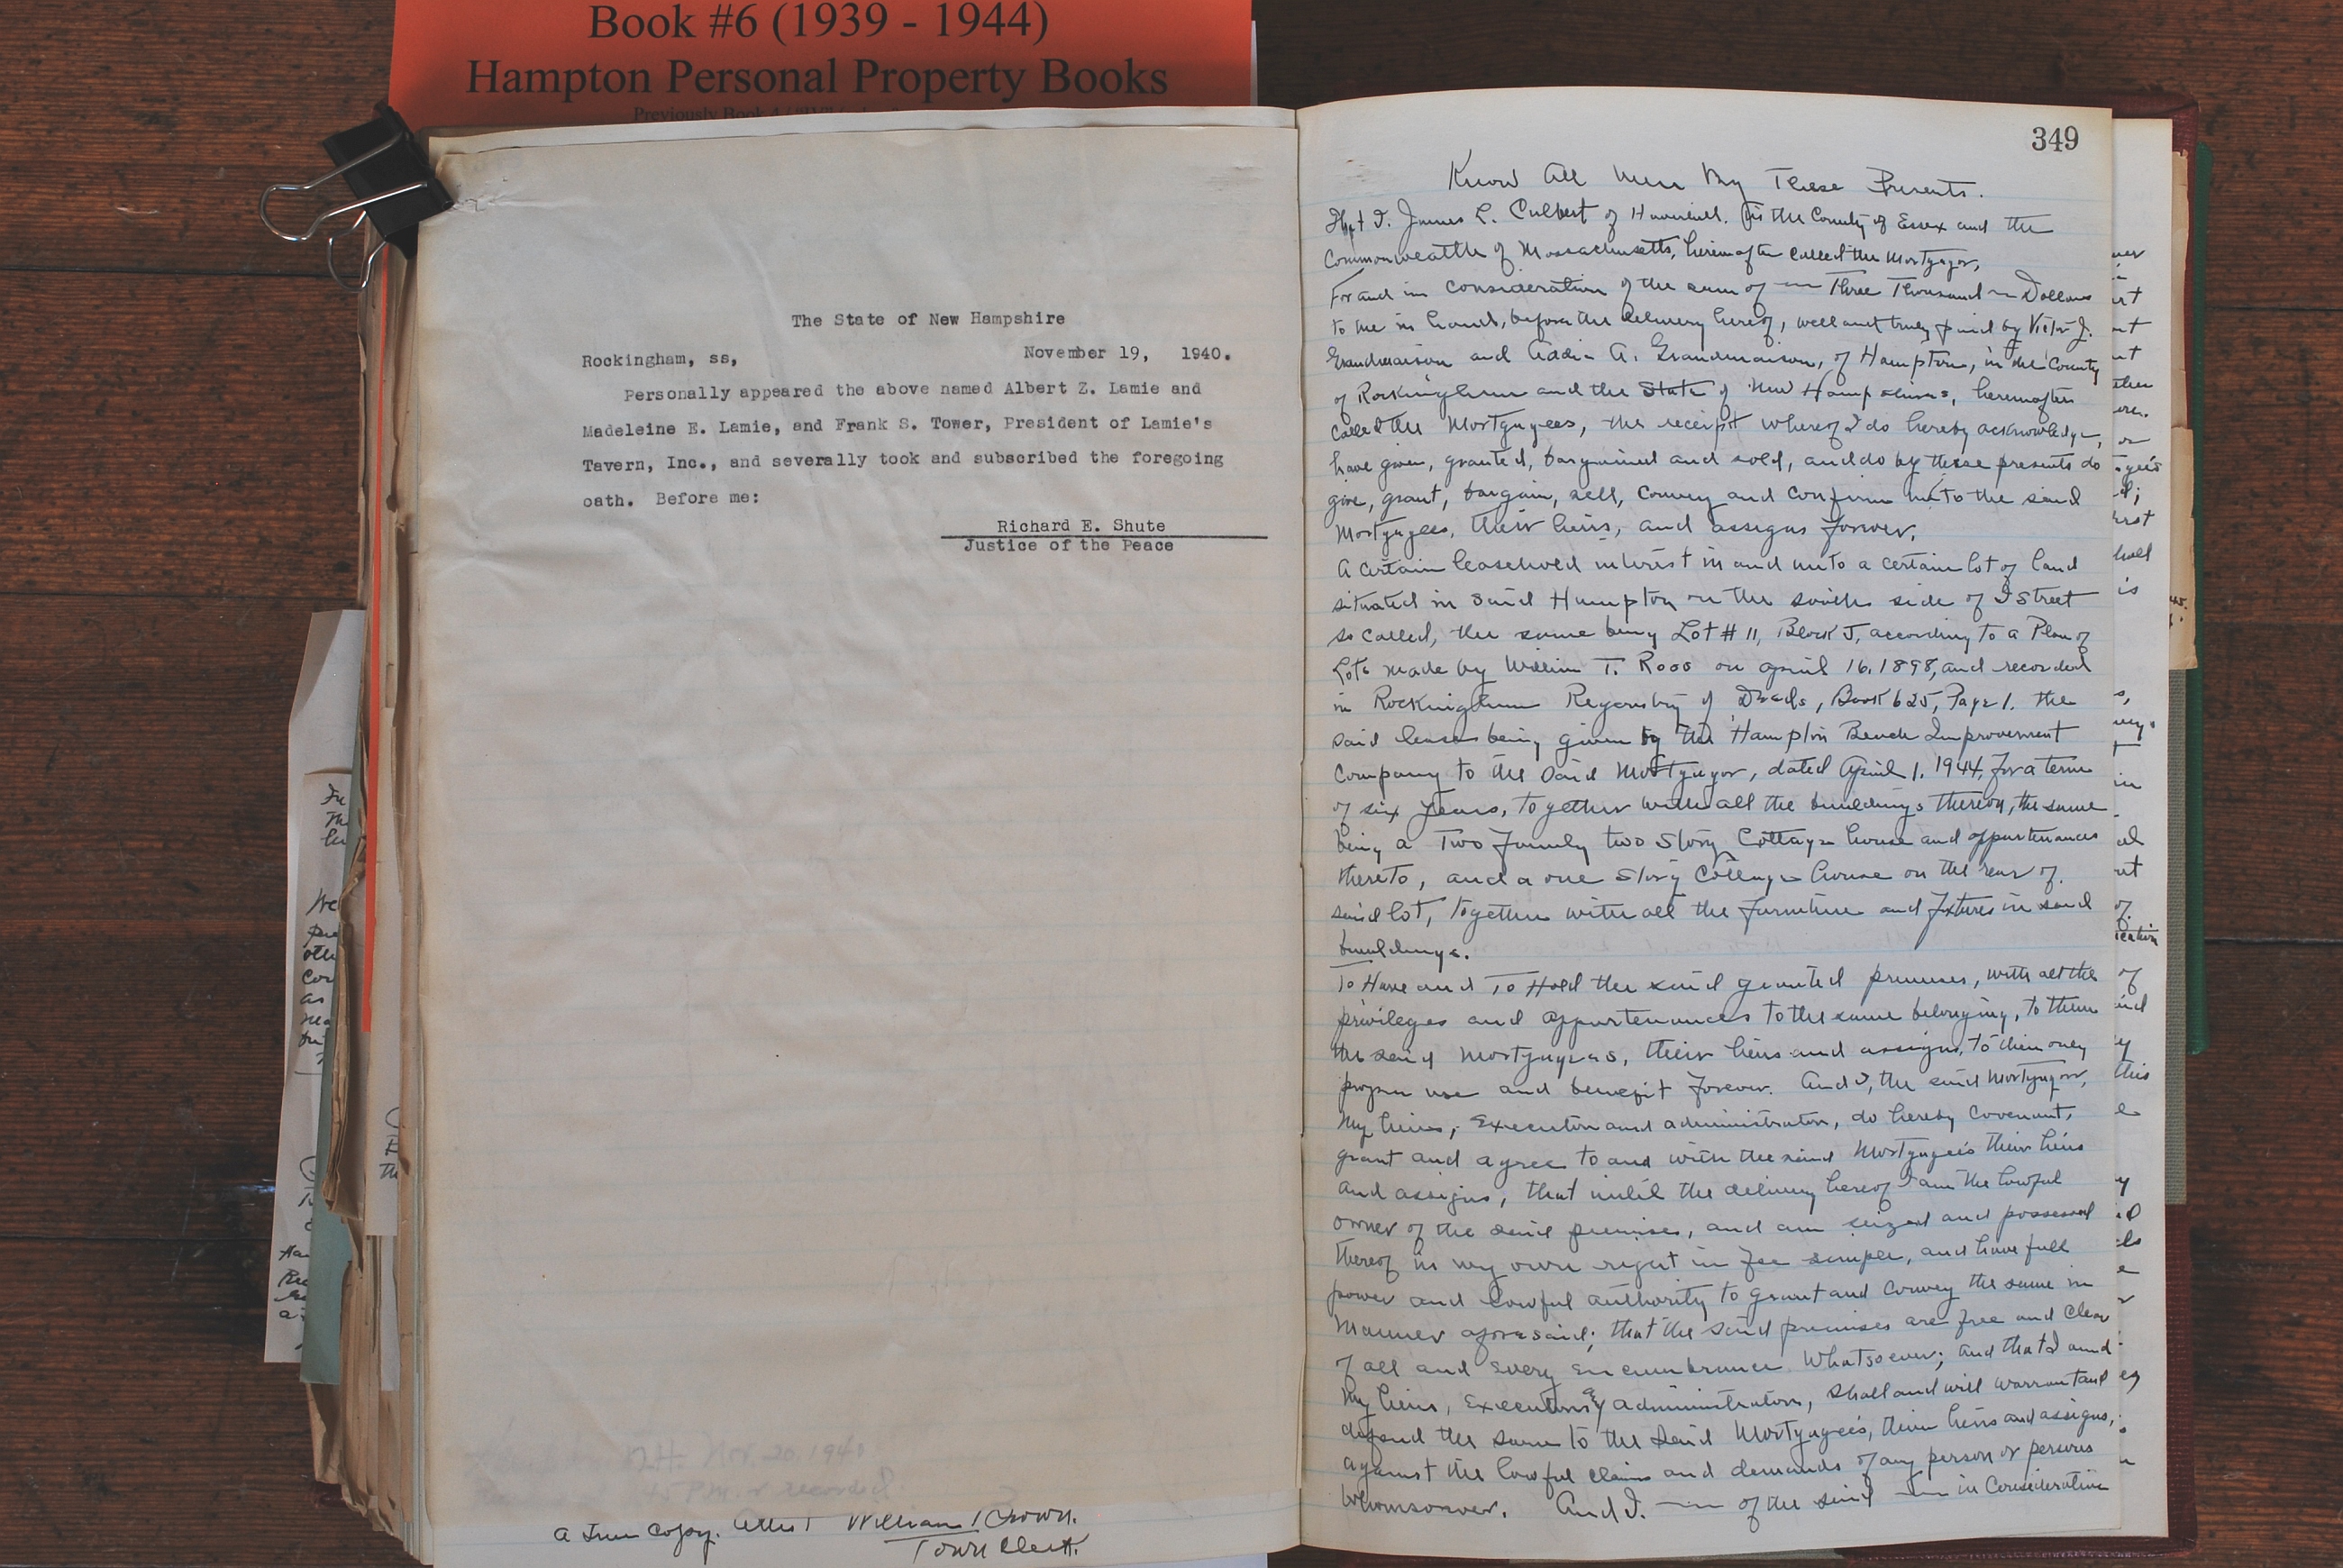 Book #6 (1939 - 1944)
Hampton Personal Property Books
The State of New Hampshire
Rockingham, ss, November 19, 1940.
Personally appeared the above named Albert Z. Lamie and
Madeleine E. Lamie, and Frank S. Tower, President of Lamie's
Tavern, Inc., and severally took and subscribed the foregoing
oath. Before me:
Richard E. Shute
Justice of the Peace
N.H. Nov. 20, 1940
P.M. & recorded
A True Copy. Attest William Brown.
Town Clerk.
349
Know All Men By These Presents.
That I. James L. Culbert of Haverhill. in the County of Essex and the
Commonwealth of Massachusetts, hereinafter called the Mortgagor,
For and in consideration of the sum of — Three Thousand — Dollars
to me in hand, before the delivery hereof, well and truly paid by Victor J.
Grandmaison and Addie A. Grandmaison, of Hampton, in the County
of Rockingham and the State of New Hampshire, hereinafter
called the Mortgagees, the receipt whereof I do hereby acknowledge,
have given, granted, bargained and sold, and do by these presents do
give, grant, bargain, sell, convey and confirm unto the said
Mortgagees, their heirs, and assigns forever.
A certain leasehold interest in and unto a certain lot of land
situated in said Hampton on the south side of I Street
so called, the same being Lot # 11, Block J, according to a Plan of
Lots made by William T. Ross on April 16, 1898, and recorded
in Rockingham Regestry of Deeds, Book 625, Page 1. the
said lease being given by the Hampton Beach Improvement
Company to the said Mortgagor, dated April 1. 1944, for a term
of six years, together with all the buildings thereon, the same
being a Two Family two Story Cottage house and appurtenances
thereto, and a one story Cottage house on the rear of
said lot, together with all the furniture and fixtures in said
buildings.
To Have and To Hold the said granted premises, with all the
privileges and appurtenances to the same belonging, to them
the said Mortgagees, their heirs and assigns, to their only
proper use and benefit forever. And I, the said Mortgagor,
My heirs, Executors and administrators, do hereby Covenant,
grant and agree to and with the said Mortgagees their heirs
and assigns, that until the delivery hereof I am the lawful
owner of the said premises, and am seized and possessed
thereof in my own right in fee simple, and have full
power and lawful authority to grant and convey the same in
Manner aforesaid; that the said premises are free and clear
of all and every encumbrance whatsoever; and that I and
My heirs, Executors & administrators, shall and will warrant and
defend the same to the said Mortgagees, their heirs and assigns,
against the lawful claims and demands of any person or persons
Whomsoever. And I. — of the said — in Consideration